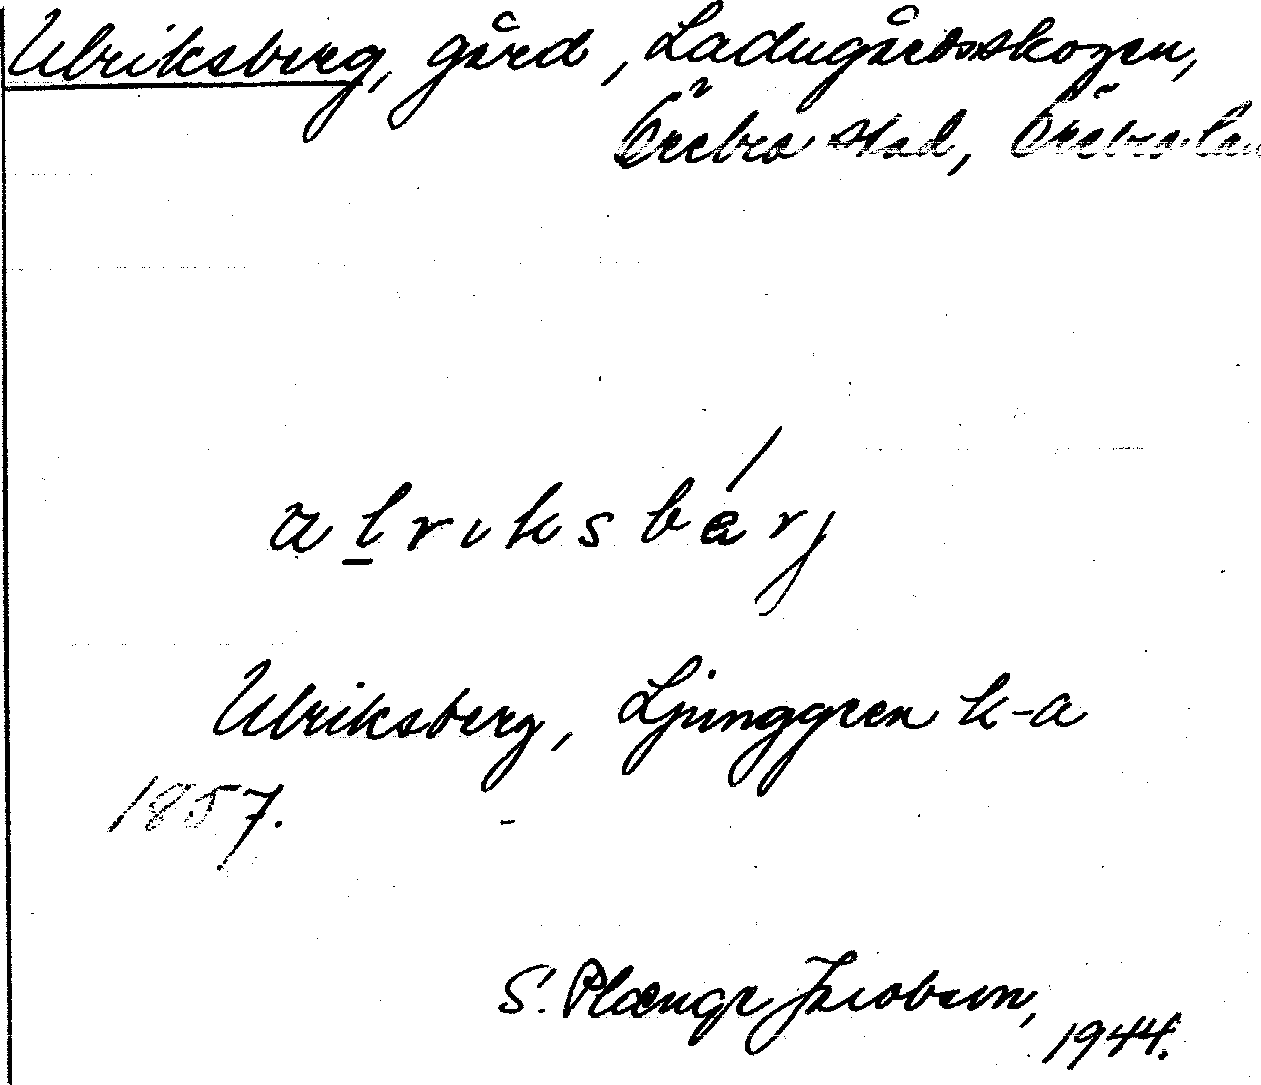 Ulriksberg, gård, Ladugårdsskogen,
Örebro stad, Örebro län
ulriksbärj
Ulriksberg, Ljunggren k-a
1857.
S. Plænge Jacobson,
1944.